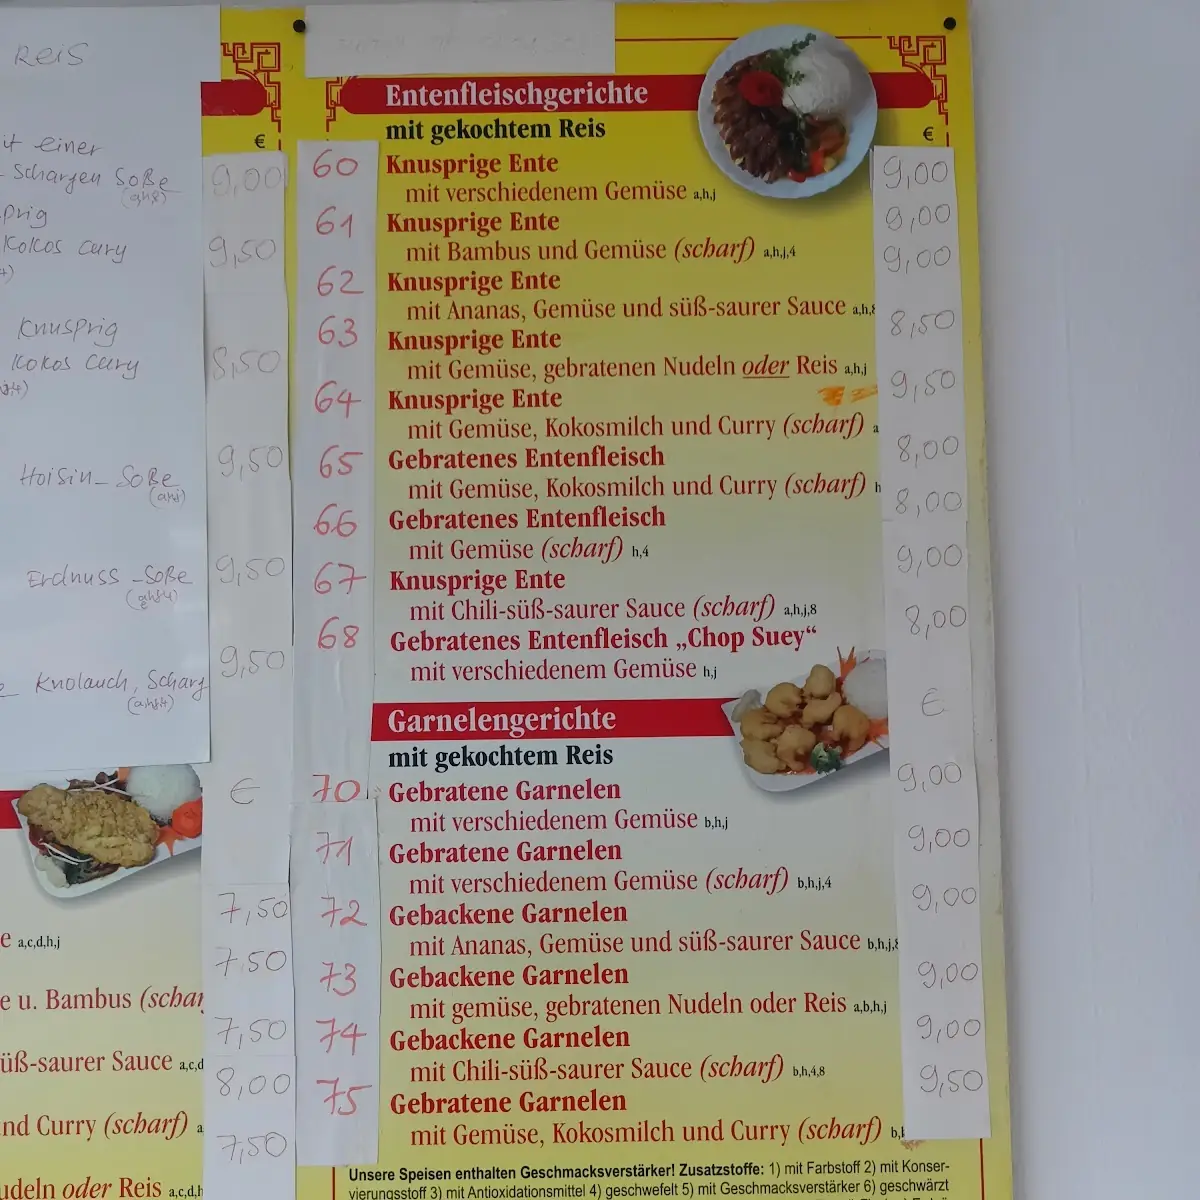 Reis
it einer
scharfen Soße
prig
Kokos Cury
Knusprig
Kokos Cury
Hoisin-Soße
Erdnuss-Soße
Knolauch, Scharf
€
9,00
9,50
8,50
9,50
9,50
9,50
€
7,50
7,50
7,50
8,00
7,50
e a,c,d,h,j
e u. Bambus (schar
üß-saurer Sauce a,c,d
nd Curry (scharf) a
udeln oder Reis a,c,d,h
Entenfleischgerichte
mit gekochtem Reis €
60 Knusprige Ente 9,00
mit verschiedenem Gemüse a,h,j
61 Knusprige Ente 9,00
mit Bambus und Gemüse (scharf) a,h,j,4
62 Knusprige Ente 9,00
mit Ananas, Gemüse und süß-saurer Sauce a,h,8
63 Knusprige Ente 8,50
mit Gemüse, gebratenen Nudeln oder Reis a,h,j
64 Knusprige Ente 9,50
mit Gemüse, Kokosmilch und Curry (scharf) a
65 Gebratenes Entenfleisch 8,00
mit Gemüse, Kokosmilch und Curry (scharf) h
66 Gebratenes Entenfleisch 8,00
mit Gemüse (scharf) h,4
67 Knusprige Ente 9,00
mit Chili-süß-saurer Sauce (scharf) a,h,j,8
68 Gebratenes Entenfleisch „Chop Suey“ 8,00
mit verschiedenem Gemüse h,j
Garnelengerichte €
mit gekochtem Reis
70 Gebratene Garnelen 9,00
mit verschiedenem Gemüse b,h,j
71 Gebratene Garnelen 9,00
mit verschiedenem Gemüse (scharf) b,h,j,4
72 Gebackene Garnelen 9,00
mit Ananas, Gemüse und süß-saurer Sauce b,h,j,8
73 Gebackene Garnelen 9,00
mit gemüse, gebratenen Nudeln oder Reis a,b,h,j
74 Gebackene Garnelen 9,00
mit Chili-süß-saurer Sauce (scharf) b,h,4,8
75 Gebratene Garnelen 9,50
mit Gemüse, Kokosmilch und Curry (scharf) b,
Unsere Speisen enthalten Geschmacksverstärker! Zusatzstoffe: 1) mit Farbstoff 2) mit Konser-
vierungsstoff 3) mit Antioxidationsmittel 4) geschwefelt 5) mit Geschmacksverstärker 6) geschwärzt